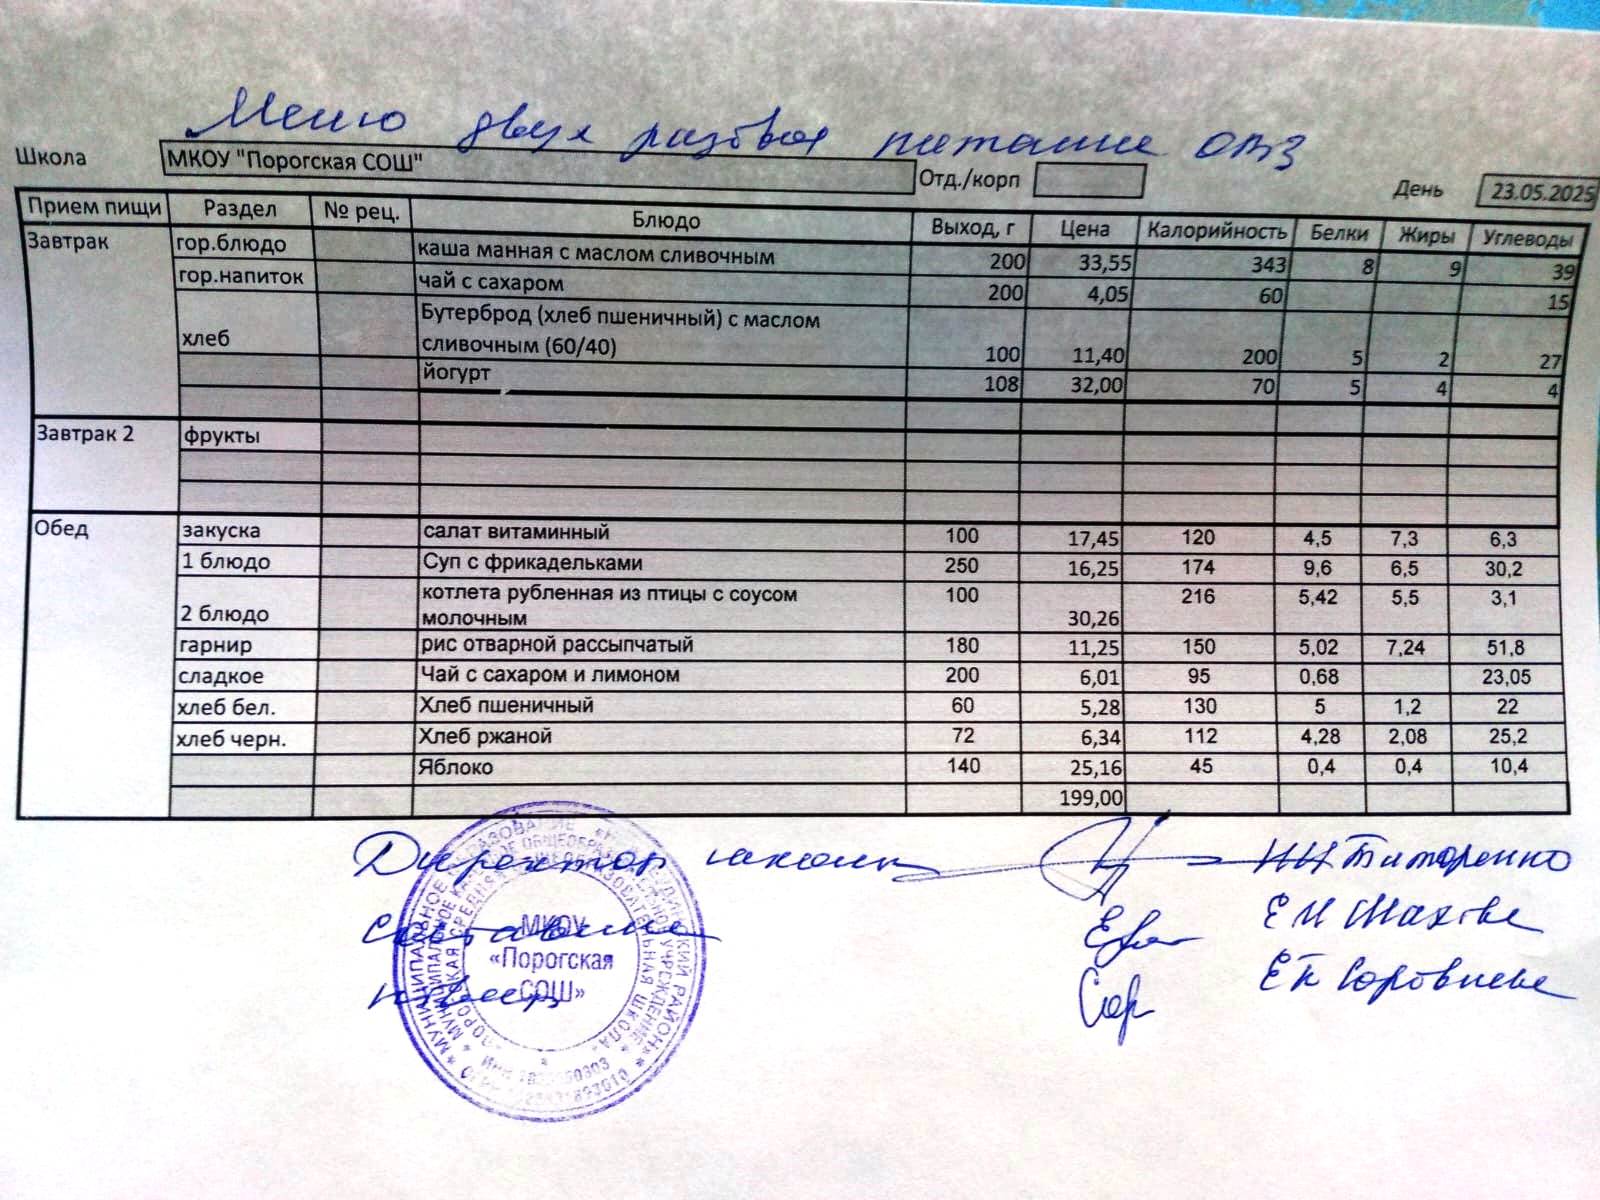 Меню двух разовое питание ОВЗ
Школа МКОУ "Порогская СОШ" Отд./корп День 23.05.2025
Прием пищи Раздел № рец. Блюдо Выход, г Цена Калорийность Белки Жиры Углеводы
Завтрак гор.блюдо каша манная с маслом сливочным 200 33,55 343 8 9 39
гор.напиток чай с сахаром 200 4,05 60 15
хлеб Бутерброд (хлеб пшеничный) с маслом
сливочным (60/40) 100 11,40 200 5 2 27
йогурт 108 32,00 70 5 4 4
Завтрак 2 фрукты
Обед закуска салат витаминный 100 17,45 120 4,5 7,3 6,3
1 блюдо Суп с фрикадельками 250 16,25 174 9,6 6,5 30,2
2 блюдо котлета рубленная из птицы с соусом
молочным 100 30,26 216 5,42 5,5 3,1
гарнир рис отварной рассыпчатый 180 11,25 150 5,02 7,24 51,8
сладкое Чай с сахаром и лимоном 200 6,01 95 0,68 23,05
хлеб бел. Хлеб пшеничный 60 5,28 130 5 1,2 22
хлеб черн. Хлеб ржаной 72 6,34 112 4,28 2,08 25,2
Яблоко 140 25,16 45 0,4 0,4 10,4
199,00
Директор школы
Составила
повар
МКОУ
«Порогская
СОШ»